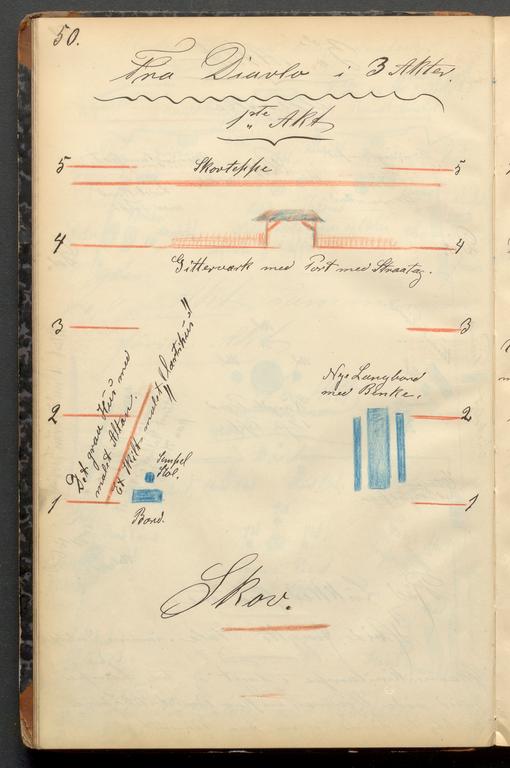 50.
Fra Diavlo i 3 Akter.
1ste Akt
5 Skovteppe 5
4 4
Gitterværk med Port med Straatag.
3 3
Nye Langbord
med Benke.
2 2
Det graa Huus med
malet Altan.
Et Skilt malet
Simpel
Stol.
1 1
Bord.
Skov.